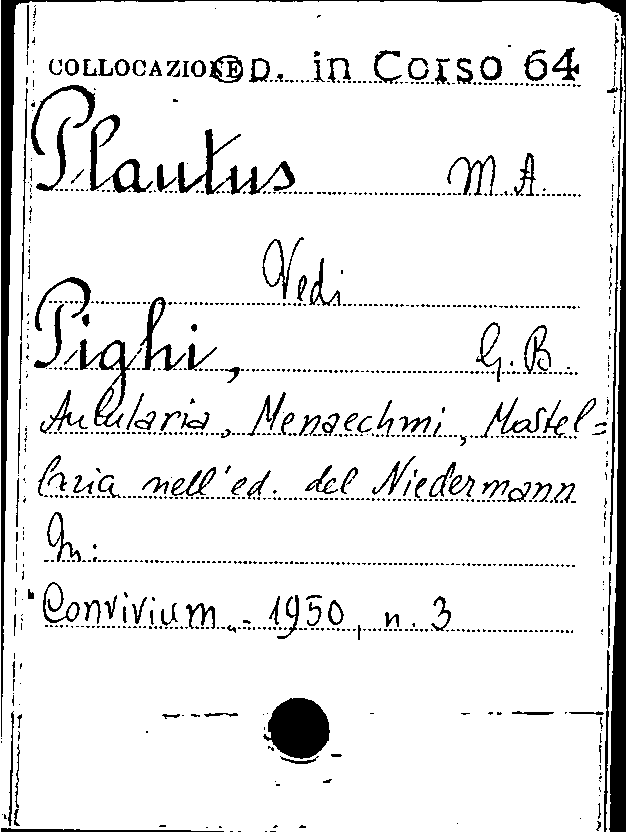 COLLOCAZIONE P. in Corso 64
Plautus M. A.
Vedi
Pighi, G. B.
Aulularia, Menaechmi, Mostel=
laria nell'ed. del Niedermann
In:
Convivium - 1950, n. 3